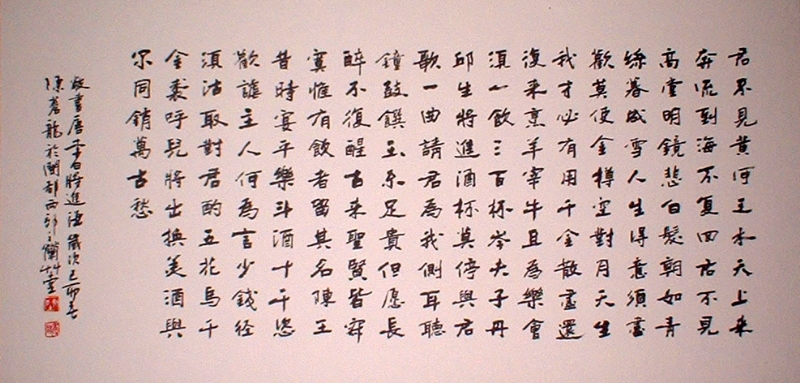 君不見黃河之水天上来
奔流到海不复回君不見
高堂明鏡悲白髮朝如青
絲暮成雪人生得意須盡
歡莫使金樽空對月天生
我才必有用千金散盡還
復来烹羊宰牛且為樂會
須一飲三百杯岑夫子丹
邱生將進酒杯莫停與君
歌一曲請君為我側耳聽
鐘鼓饌玉不足貴但愿長
醉不復醒古来聖賢皆寂
寞惟有飲者留其名陳王
昔時宴平樂斗酒十千恣
歡謔主人何為言少錢径
須沽取對君酌五花馬千
金裘呼兒將出換美酒與
尔同銷萬古愁
敬書唐李白將進酒歲次己卯春
陳蒼龍於閩都西郊蘭